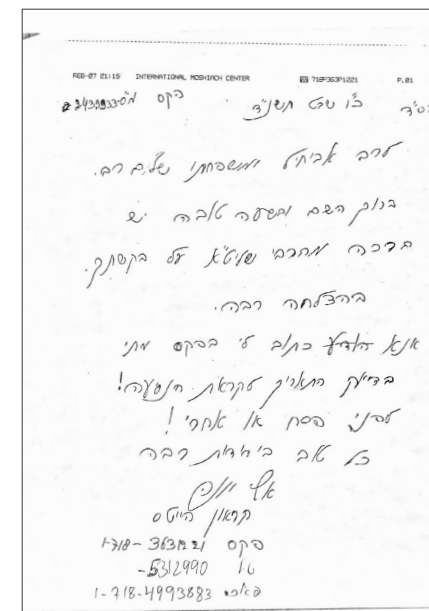 FEB-07 21:15 INTERNATIONAL MOSHIACH CENTER 718P363P1021 P.01
בס"ד כ"ו שבט תשנ"ד פקס
לרב אביחיל ומשפחתו שלום רב.
ברוך השם ובשעה טובה יש
ברכה מהרבי שליט"א על בקשתך.
בהצלחה רבה.
אנא הודיע כתוב לי בפקס מתי
בדיוק התאריך לקראת הנסיעה!
לפני פסח או אחרי!
כל טוב ביחידות רבה
קראון הייטס
פקס 1-718-3631021
טל 5312990-
1-718-4993883